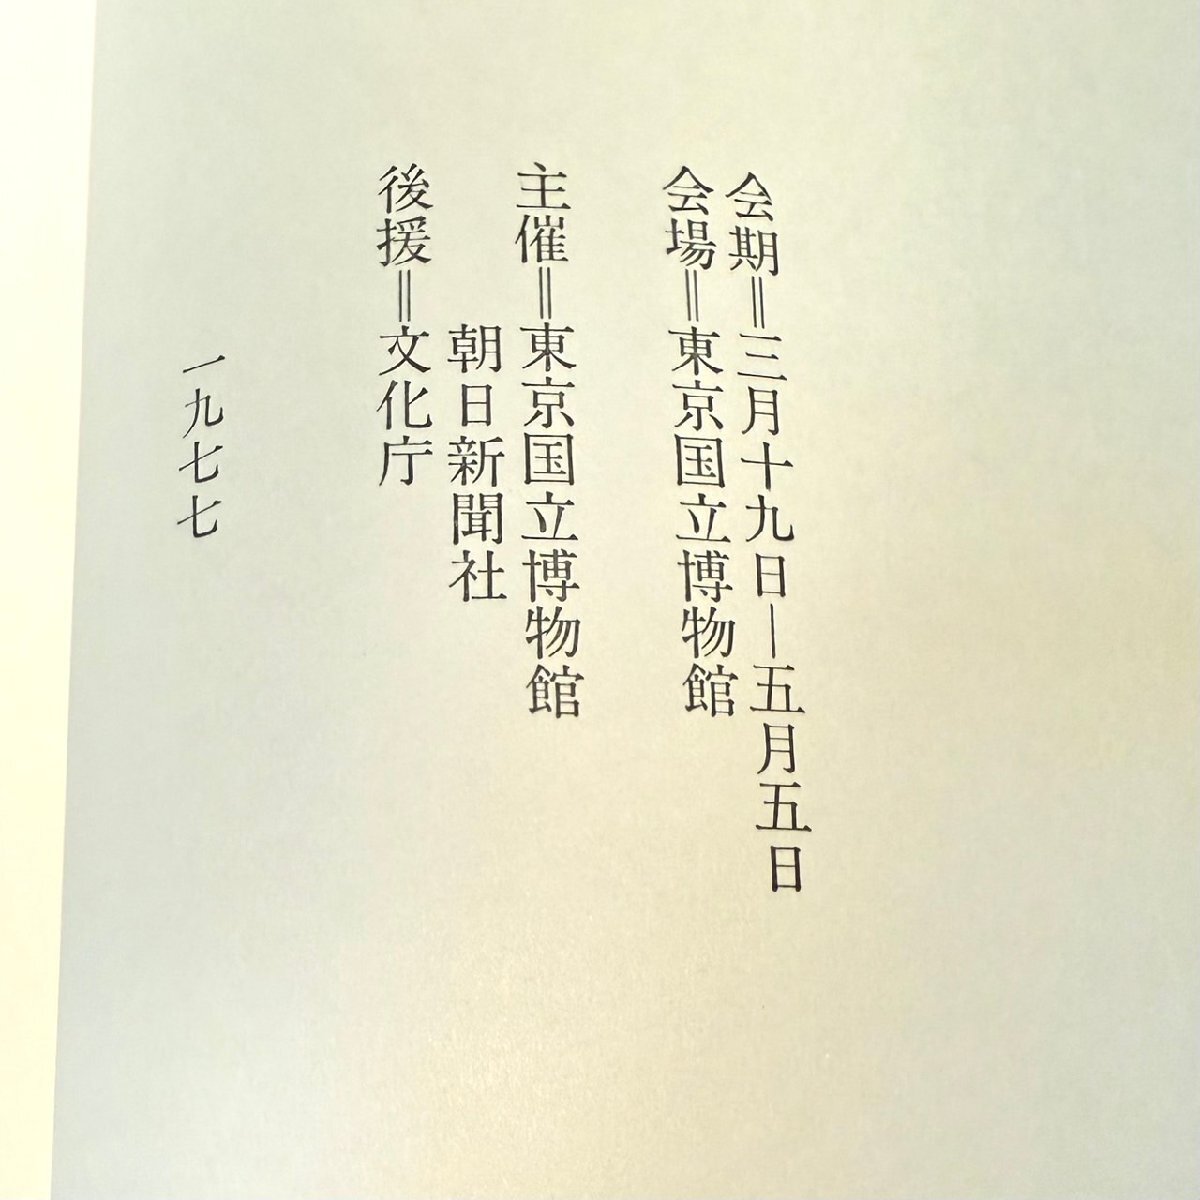 会期＝三月十九日―五月五日
会場＝東京国立博物館
主催＝東京国立博物館
朝日新聞社
後援＝文化庁
一九七七